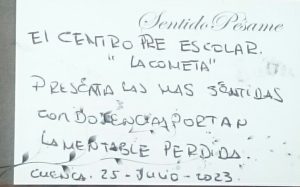 Sentido Pésame
El CENTRO PRE ESCOLAR.
" LA COMETA"
PRESENTA LAS MAS SENTIDAS
CONDOLENCIAS PORTAN
LAMENTABLE PERDIDA.
CUENCA. 25 - JULIO - 2023.